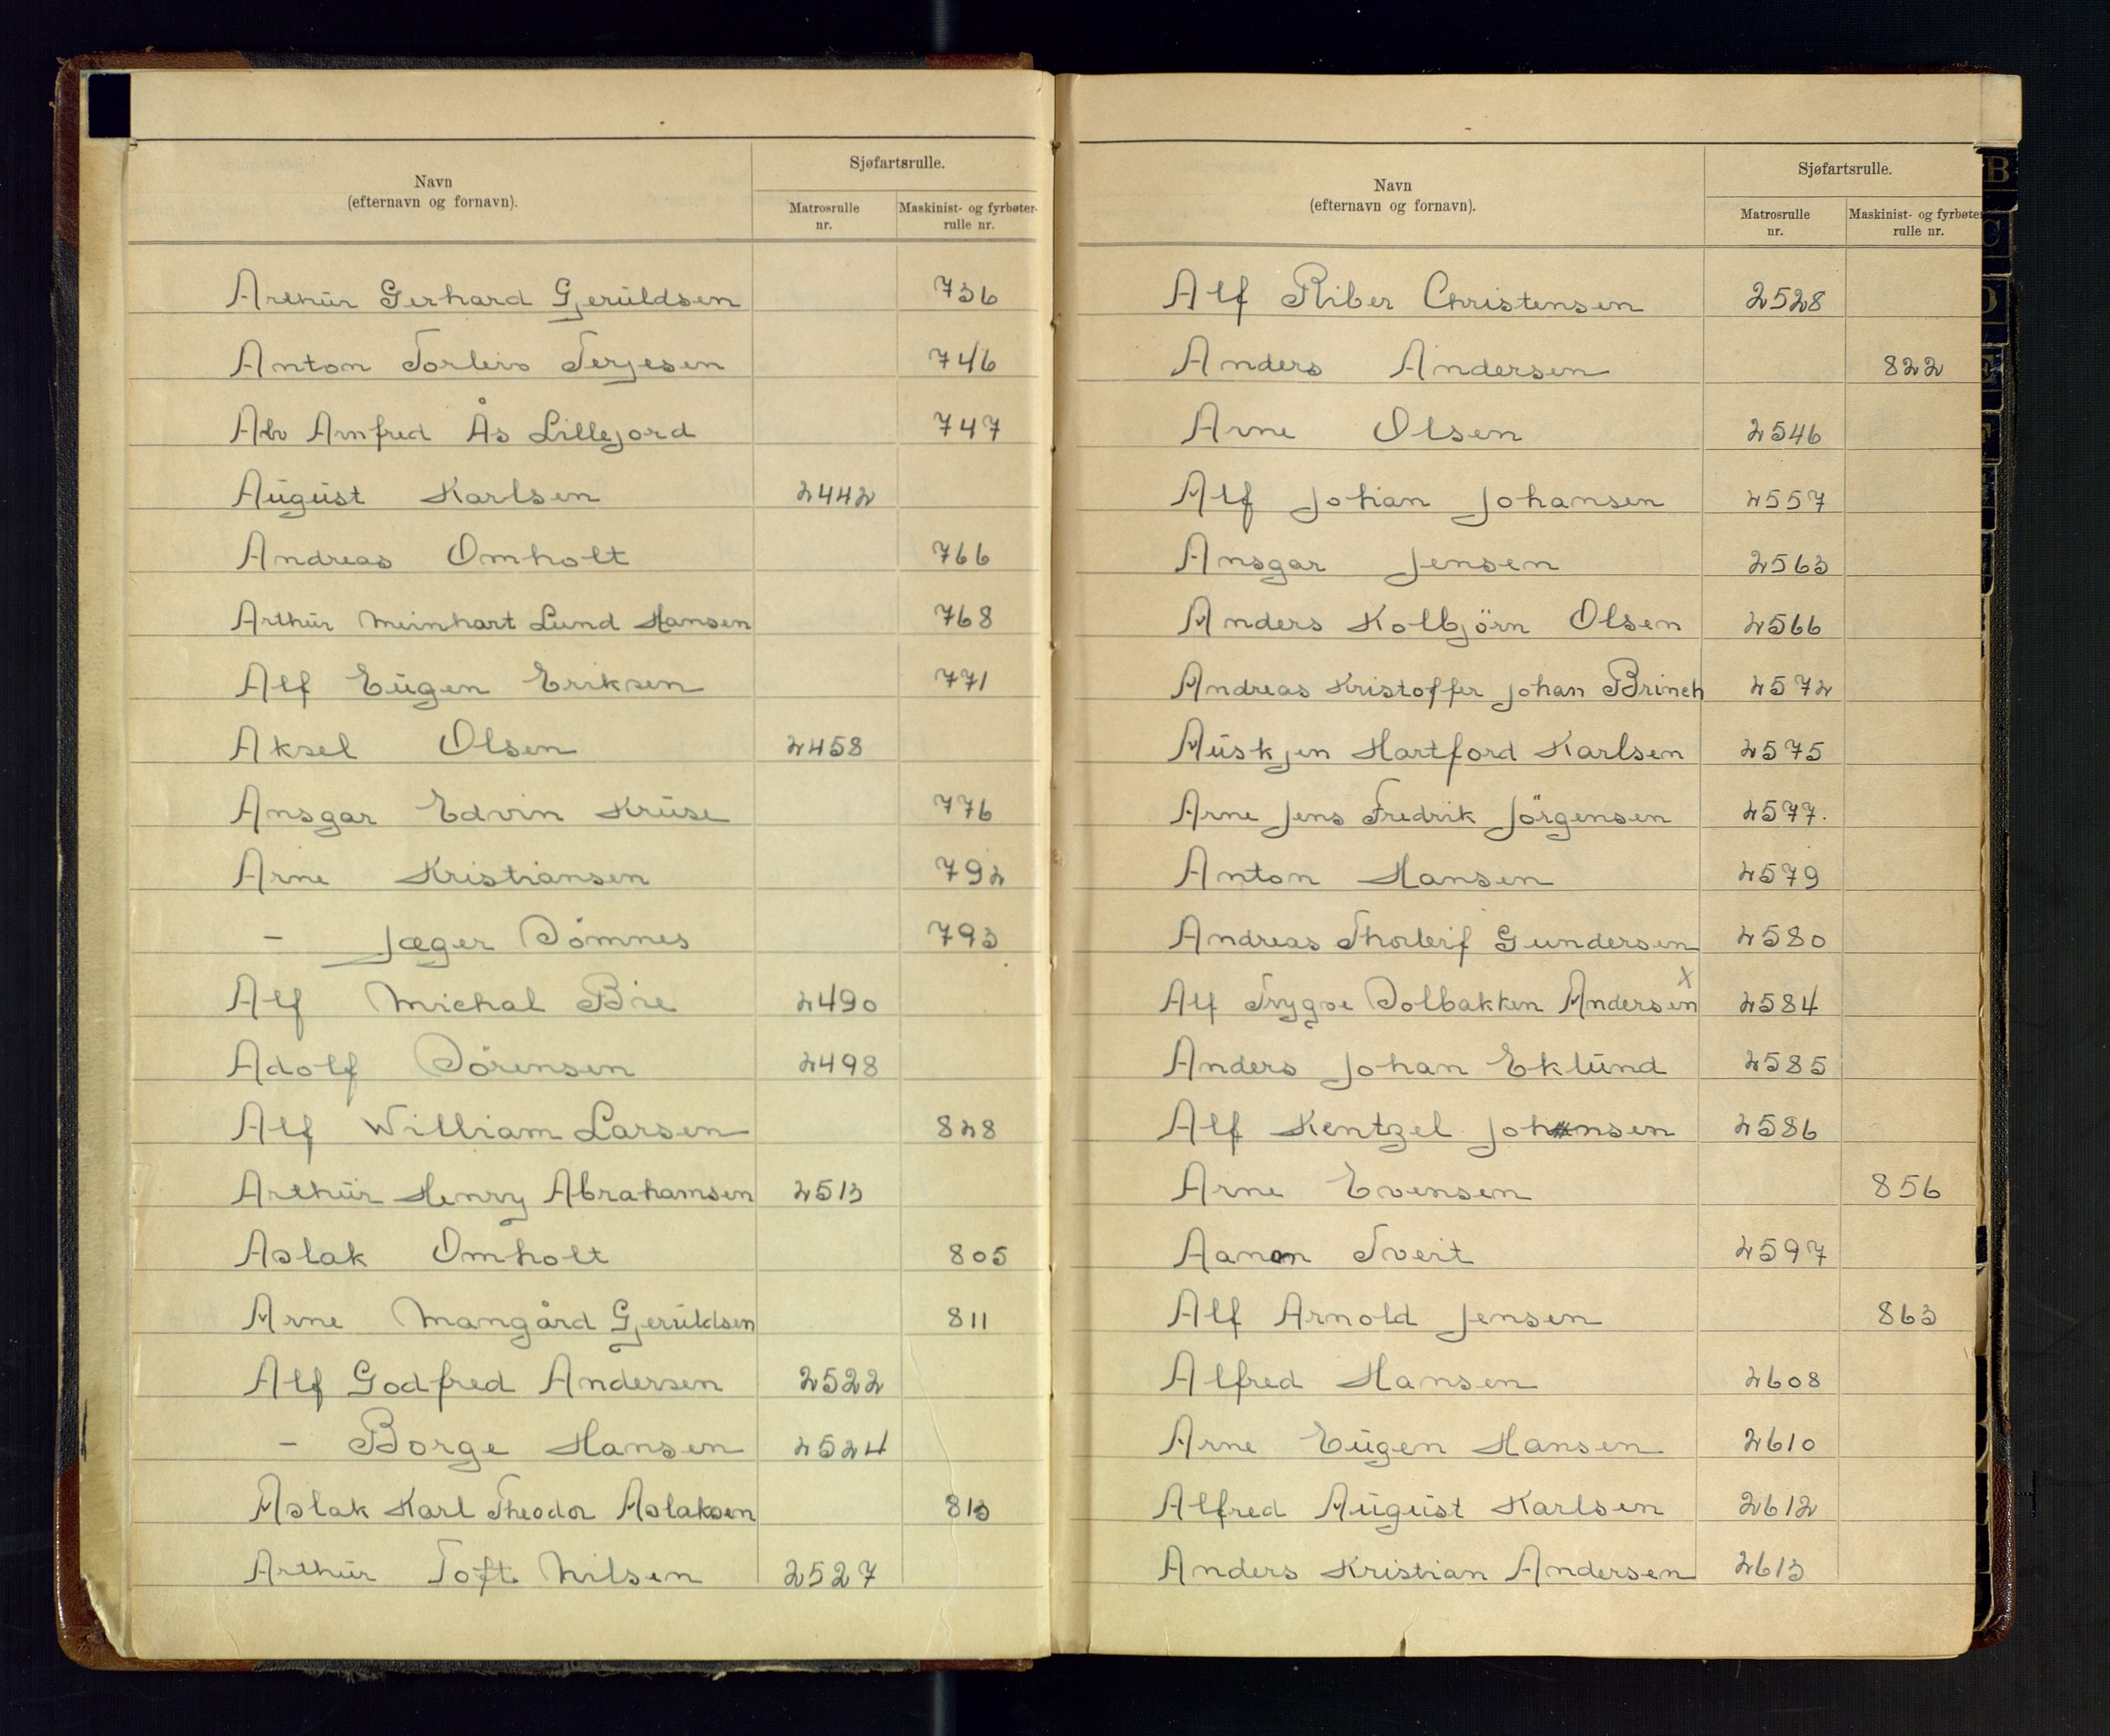 Navn
(efternavn og fornavn).
Sjøfartsrulle.
Matrosrulle nr.
Maskinist- og fyrbøter-rulle nr.
Arthur Gerhard Gjeruldsen 736
Anton Torleiv Terjesen 746
Alv Arnfred Ås Lillejord 747
August Karlsen 2442
Andreas Omholt 766
Arthur Meinhart Lund Hansen 768
Alf Eugen Eriksen 771
Aksel Olsen 2458
Ansgar Edvin Kruse 776
Arne Kristiansen 792
- Jæger Sömnes 793
Alf Michal Bie 2490
Adolf Sörensen 2498
Alf William Larsen 828
Arthur Henry Abrahamsen 2513
Aslak Omholt 805
Arne Mangård Gjeruldsen 811
Alf Godfred Andersen 2522
- Borge Hansen 2524
Aslak Karl Theodor Aslaksen 813
Arthur Toft Nilsen 2527
Navn
(efternavn og fornavn).
Sjøfartsrulle.
Matrosrulle nr.
Maskinist- og fyrbøter rulle nr.
Alf Riber Christensen 2528
Anders Andersen 822
Arne Olsen 2546
Alf Johan Johansen 2557
Ansgar Jensen 2563
Anders Kolbjörn Olsen 2566
Andreas Kristoffer Johan Brinch 2572
Auskjen Hartford Karlsen 2575
Arne Jens Fredrik Jörgensen 2577.
Anton Hansen 2579
Andreas Thorleif Gundersen 2580
Alf Trygve Solbakken Andersen x 2584
Anders Johan Eklund 2585
Alf Kentzel Johnsen 2586
Arne Evensen 856
Aanon Tveit 2597
Alf Arnold Jensen 863
Alfred Hansen 2608
Arne Eugen Hansen 2610
Alfred August Karlsen 2612
Anders Kristian Andersen 2613
B
C
D
E
F